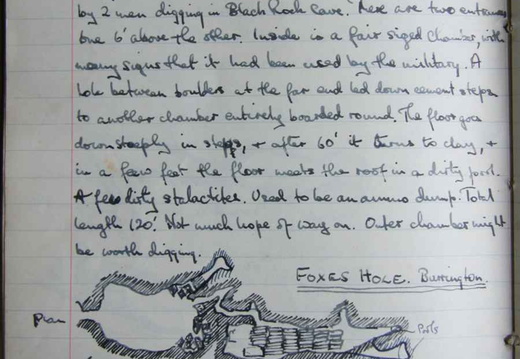 by 2 men digging in Black Rock Cave. There are two entrances
one 6' above the other. Inside is a fair sized chamber, with
many signs that it had been used by the military. A
hole between boulders at the far end led down cement steps
to another chamber entirely boarded round. The floor goes
down steeply in steps, + after 60' it turns to clay, +
in a few feet the floor meets the roof in a dirty pool.
A few dirty stalactites. Used to be an ammo dump. Total
length 120'. Not much hope of way on. Outer chamber might
be worth digging.
FOXES HOLE. Burrington.
Plan
Pools